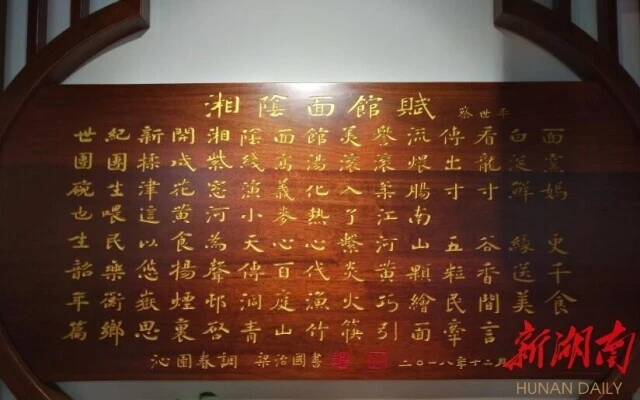 湘陰面館賦 蔡世平
世紀新開湘陰面館美譽流傳看白面
團團揉成紫綫高湯滾滾煨出龍涎
碗生津花窓漁義化入柔腸寸寸鮮媽
也喂這黃河小麥熱了江南
生民以食為天心心繫河山五谷緣更
韶樂悠揚聲傳百代炎黃顆粒香送千
年衡嶽煙邨洞庭漁火巧繪民間美食
篇鄉思裏啓青山竹筷引面牽言
沁園春調 梁治國書 二〇一八年十二月
新湖南
HUNAN DAILY